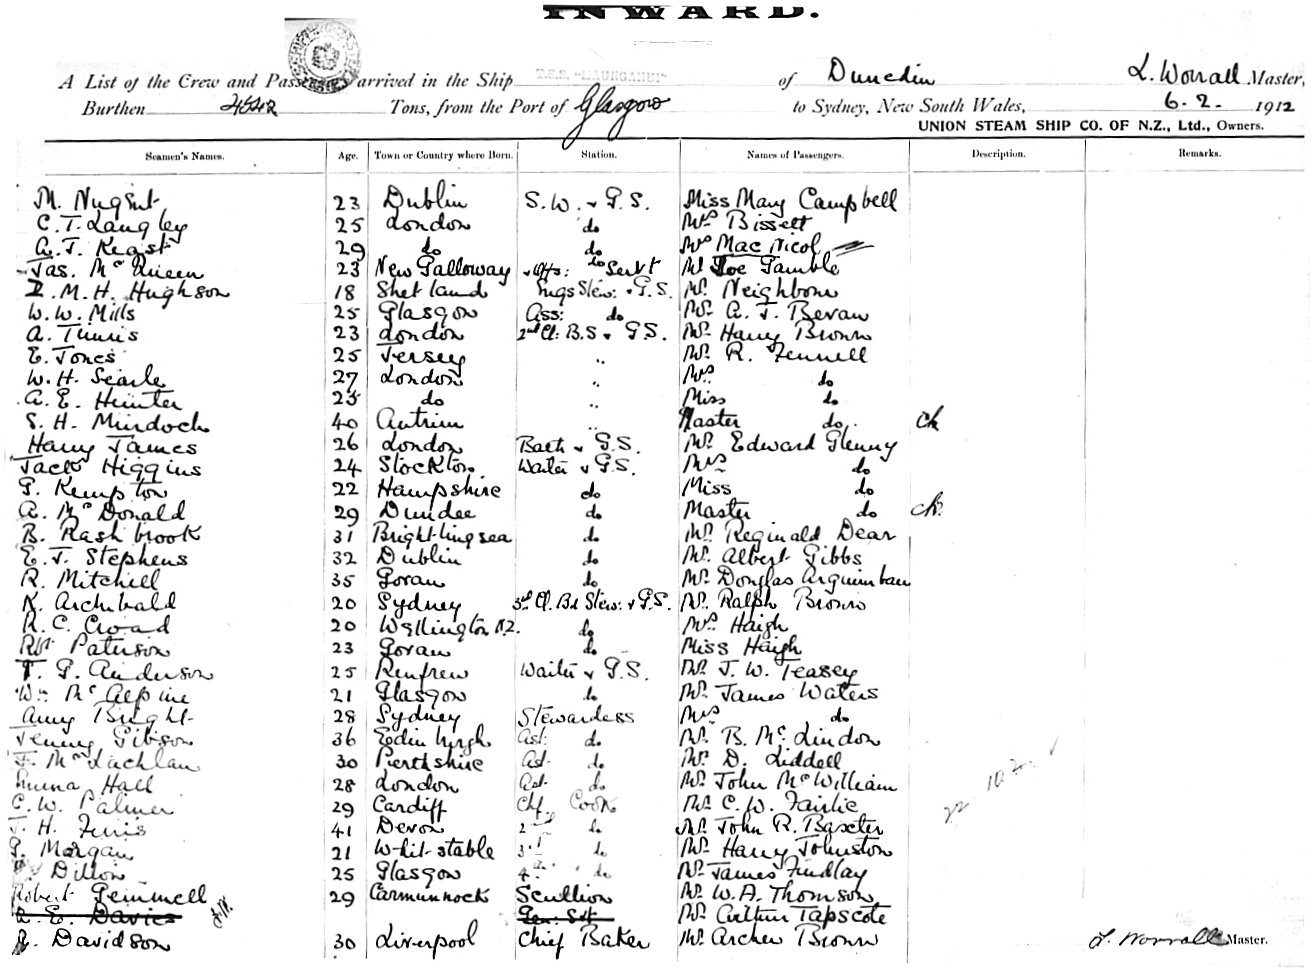 INWARD.
A List of the Crew and Passengers arrived in the Ship T.S.S. "MAUNGANUI" of Dunedin L. Worrall Master,
Burthen Tons, from the Port of Glasgow to Sydney, New South Wales, 6. 2. 1912
UNION STEAM SHIP CO. OF N.Z., Ltd., Owners.
Seamen's Names. Age. Town or Country where Born. Station. Names of Passengers. Description. Remarks.
M. Nugent 23 Dublin S.W. & G.S. Miss Mary Campbell
C. T. Langley 25 London do Mrs Bissett
A. J. Keast 29 do do Mrs Mac Nicol
Jas. Mc Queen 23 New Galloway do Servt Mr Joe Gamble
M. H. Hughson 18 Shetland Stew: & G.S. Mr. Neighbour
W. W. Mills 25 Glasgow Ass: do Mr. A. J. Bevan
A. 23 London 2nd Cl: B.S & G.S. Mr. Harry Brown
E. Jones 25 Jersey " Mr. R. Fennell
W. H. Searle 27 London " Mrs do
A. E. Hunter 25 do " Miss do
S. H. Murdoch 40 Antrim " Master do. ch
Harry James 26 London Bath & G.S. Mr. Edward Glenny
Jack Higgins 24 Stockton Waiter & G.S. Mrs do
G. Kempton 22 Hampshire do Miss do
A. Mc Donald 29 Dundee do Master do ch.
B. Rashbrook 31 Brightlingsea do Mr. Reginald Dear
E. J. Stephens 32 Dublin do Mr. Albert Gibbs
R. Mitchell 35 Govan do Mr. Douglas Arguimbau
K. Archibald 20 Sydney 3rd Cl. Bd Stew: & G.S. Mr. Ralph Brown
R. C. Croad 20 Wellington N.Z. do Mrs Haigh
Paterson 23 Govan do Miss Haigh
T. G. Anderson 25 Renfrew Waiter & G.S. Mr. J. W. Teasey
Wm Mc Alpine 21 Glasgow do Mr. James Waters
Amy Bright 28 Sydney Stewardess Mrs do
Jenny Gibson 36 Edinburgh Ast. do Mr. B. Mc. Lindon
J. Mc Lachlan 30 Perthshire Ast. do Mr. D. Liddell
Emma Hall 28 London Ast. do Mr. John McWilliam
C. W. Palmer 29 Cardiff Chf. Cook Mr. C. W. Fairlie
J. H. 41 Devon 2nd do Mr. John R. Baxter
G. Morgan 21 Whitstable 3rd do Mr. Harry Johnston
Dillon 25 Glasgow 4th do Mr. James Findlay
Robert Gemmell 29 Carmunnock Scullion Mr. W. A. Thomson
E. Davies J.W. Gen: Svt Mr. Arthur Tapscote
R. Davidson 30 Liverpool Chief Baker Mr. Archer Brown L. Worrall Master.